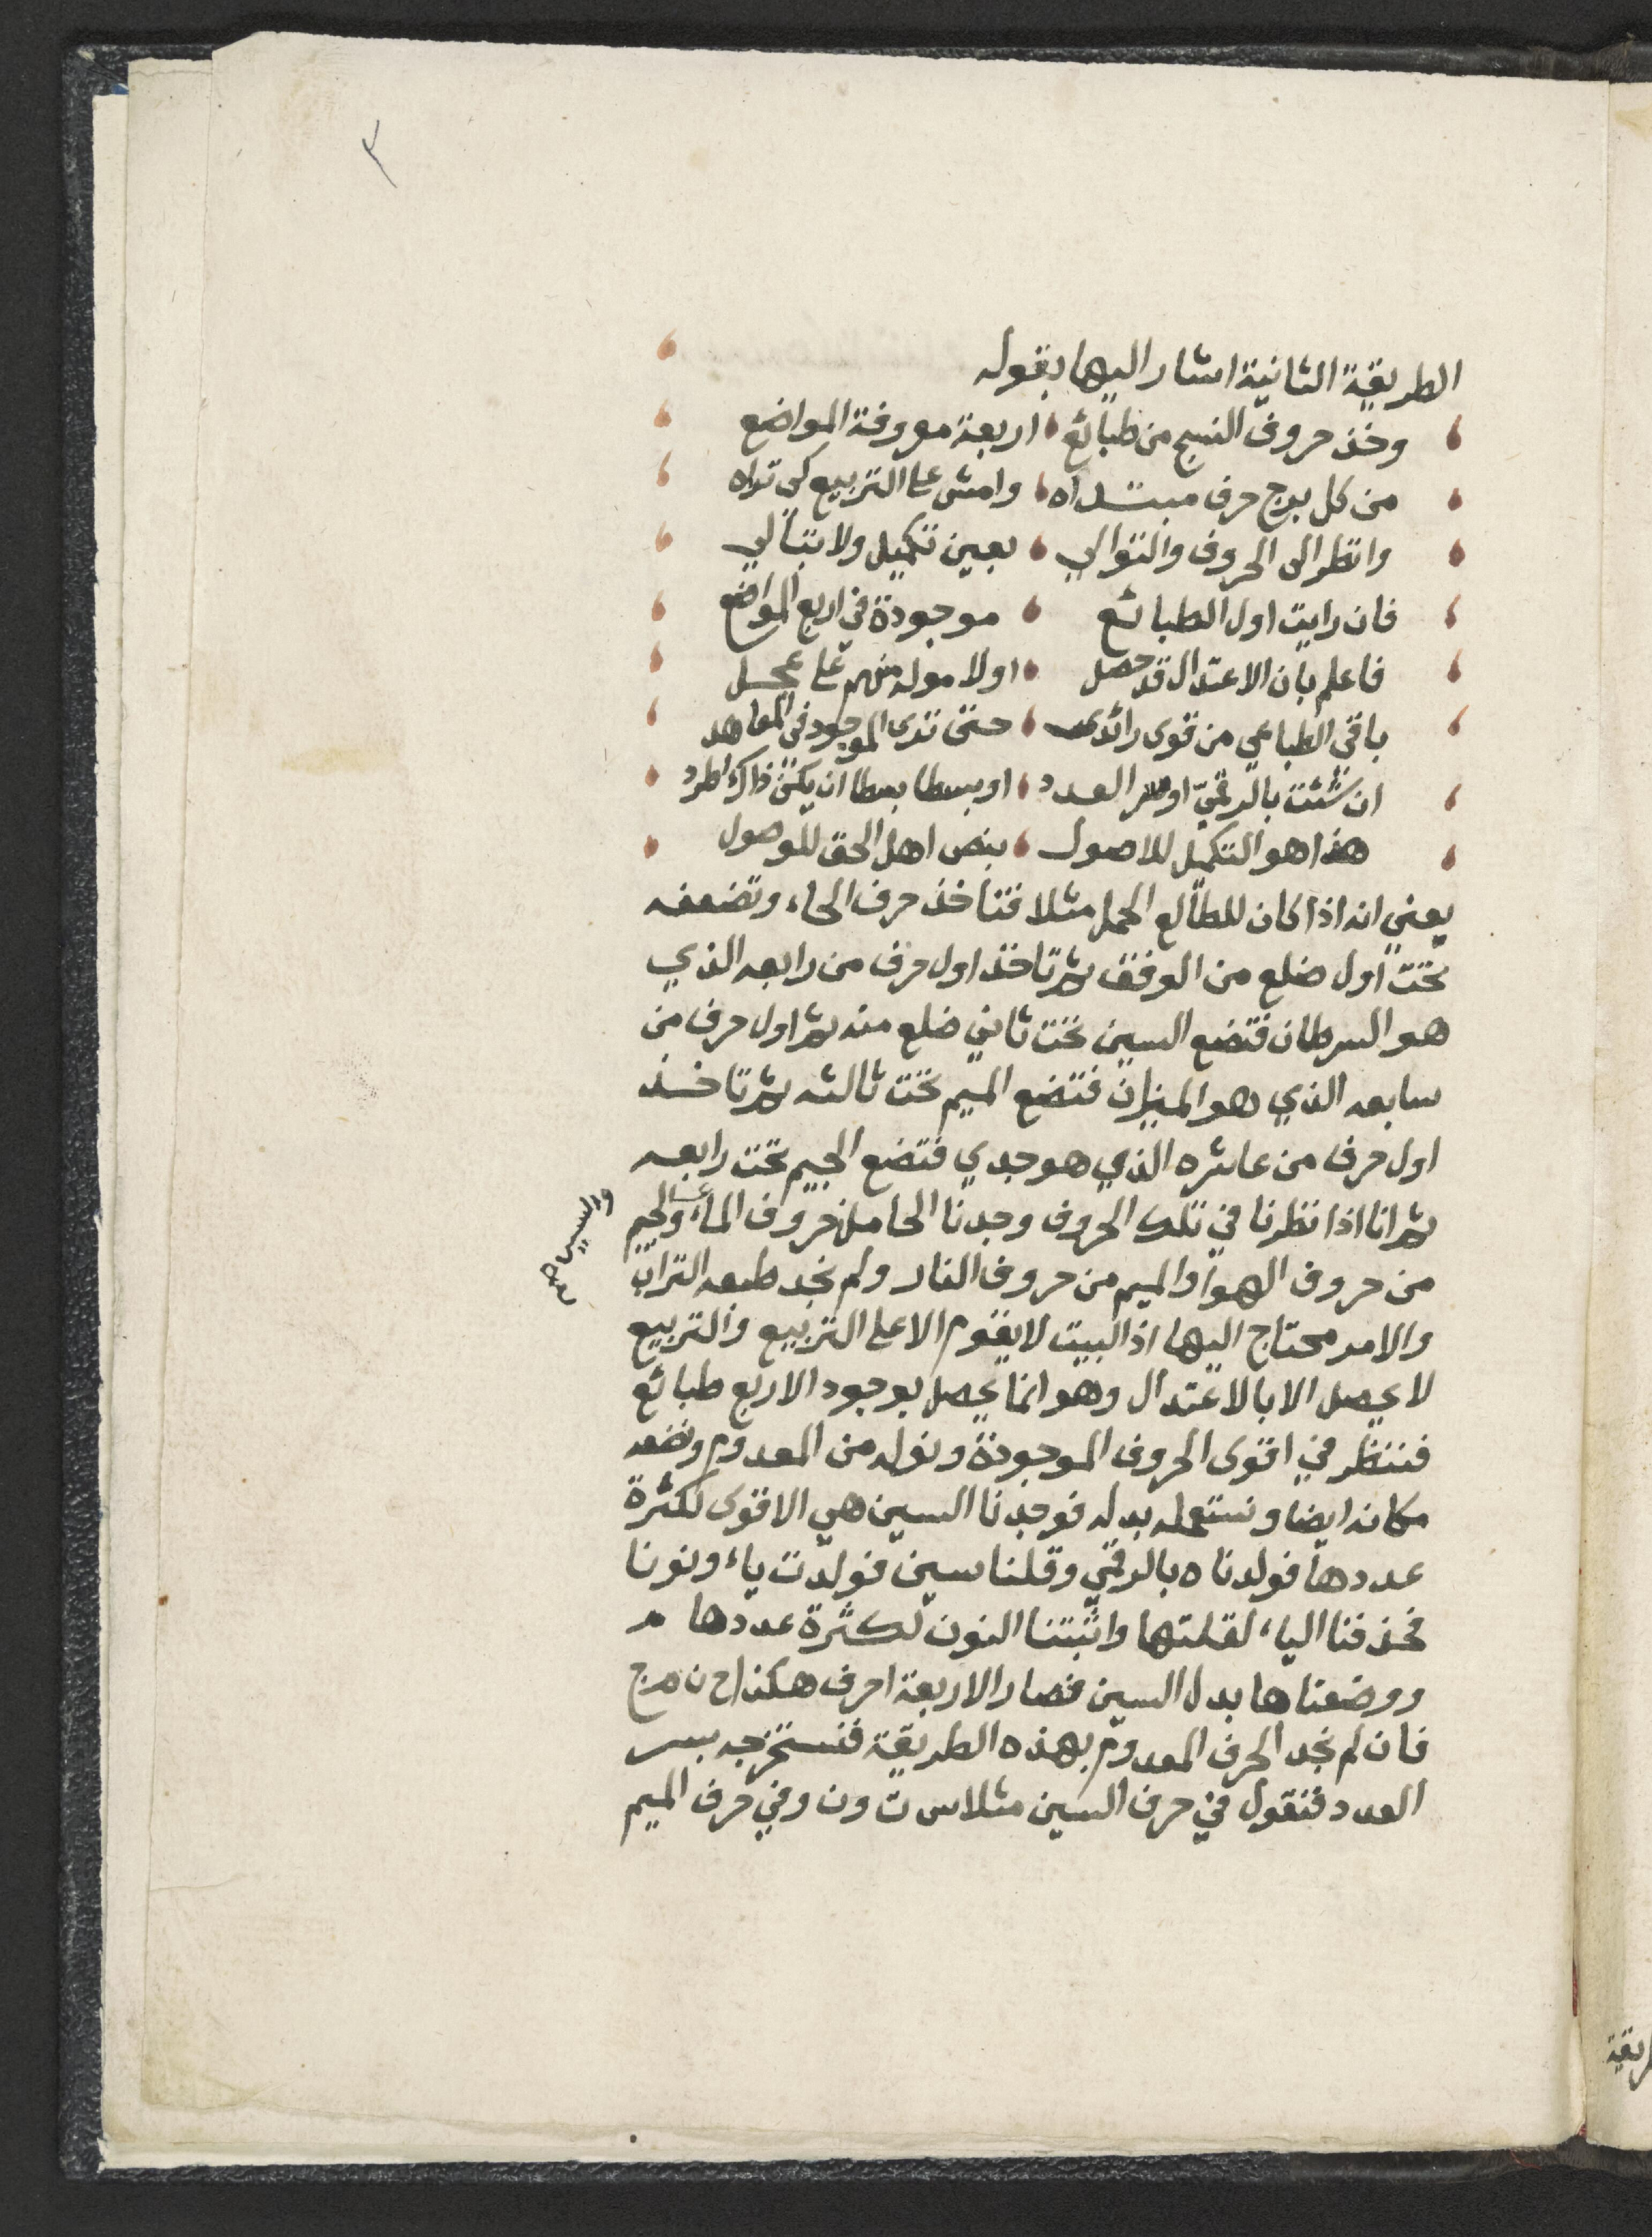 ٣
الطريقة الثانية اشار اليها بقوله
وخذ حروف النسج من طبائع اربعة معروفة المواضع
من كل برج حرف مبتداه وامش على التربيع كى تراه
وانظر الى الحروف والتوالي بعين تكميل ولا تبالي
فان رايت اول الطبائع موجودة في اربع المواضع
فاعلم بان الاعتدال قد حصل اولا مولد منهم على عجل
باقي الطباعي من قوى رائد حتى ترى الموجود في المعاهد
ان شئت بالرقمي او سر العدد او بسطا بسطا ان يكن ذاك اطرد
هذا هو التكميل للاصول بنص اهل الحق للوصول
يعني انه اذا كان للطالع الحمل مثلا فتاخذ حرف الحاء وتضعفه
تحت اول ضلع من الوفق ثم تاخذ اول حرف من رابعه الذي
هو السرطان فتضع السين تحت ثاني ضلع منه ثم اول حرف من
سابعه الذي هو الميزان فتضع الميم تحت ثالثه ثم تاخذ
اول حرف من عاشره الذي هو جدي فتضع الجيم تحت رابعه
ثم انا اذا نظرنا في تلك الحروف وجدنا الحا من حروف الماء والجيم
والسين صح
من حروف الهوا والميم من حروف النار ولم نجد طبعه التراب
والامر محتاج اليها اذ البيت لا يقوم الا على التربيع والتربيع
لا يحصل الا بالاعتدال وهو انما يحصل بوجود الاربع طبائع
فننظر في اقوى الحروف الموجودة ونوله من المعدوم ونضعه
مكانه ايضا ونستعمله بدله فوجدنا السين هي الاقوى لكثرة
عددها فولدناه بالرقمي وقلنا سين فولدت ياء ونونا
فحذفنا الياء لقلتها واثبتنا النون لكثرة عددها
ووضعناها بدل السين فصار الاربعة احرف هكذا ح ن م ج
فان لم نجد الحرف المعدوم بهذه الطريقة فنستخرجه بسر
العدد فنقول في حرف السين مثلا س ت و ن وفي حرف الميم
ريقة